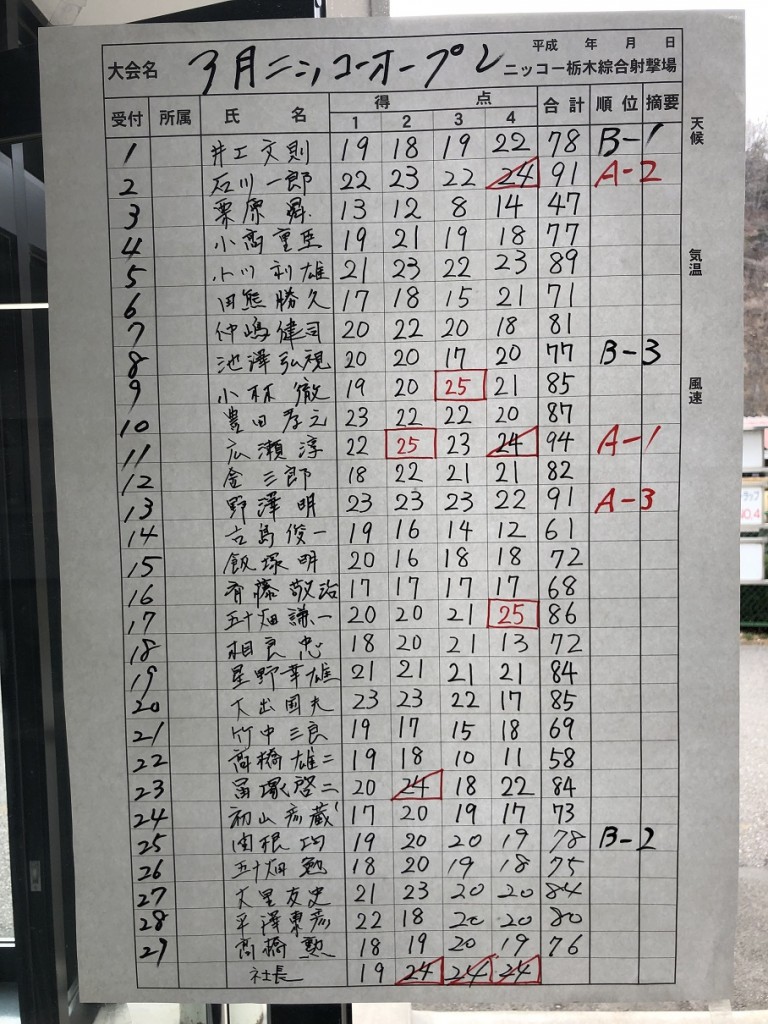 平成 年 月 日
大会名 3月ニッコーオープン ニッコー栃木綜合射撃場
受付 所属 氏名 得点 合計 順位 摘要
1 2 3 4
天候
気温
風速
1 井工文則 19 18 19 22 78 B-1
2 石川一郎 22 23 22 24 91 A-2
3 栗原昇 13 12 8 14 47
4 小高重臣 19 21 19 18 77
5 小川利雄 21 23 22 23 89
6 田熊勝久 17 18 15 21 71
7 仲嶋健司 20 22 20 18 81
8 池澤弘視 20 20 17 20 77 B-3
9 小林徹 19 20 25 21 85
10 豊田孝元 23 22 22 20 87
11 広瀬淳 22 25 23 24 94 A-1
12 金三郎 18 22 21 21 82
13 野澤明 23 23 23 22 91 A-3
14 吉島俊一 19 16 14 12 61
15 飯塚明 20 16 18 18 72
16 斉藤敬治 17 17 17 17 68
17 五十畑謙一 20 20 21 25 86
18 相良忠 18 20 21 13 72
19 星野幸雄 21 21 21 21 84
20 大出国夫 23 23 22 17 85
21 竹中三良 19 17 15 18 69
22 高橋雄二 19 18 10 11 58
23 冨塚啓二 20 24 18 22 84
24 初山彦蔵 17 20 19 17 73
25 関根均 19 20 20 19 78 B-2
26 五十畑勉 18 20 19 18 75
27 大里友史 21 23 20 20 84
28 平澤東彦 22 18 20 20 80
29 高橋勲 18 19 20 19 76
社長 19 24 24 24